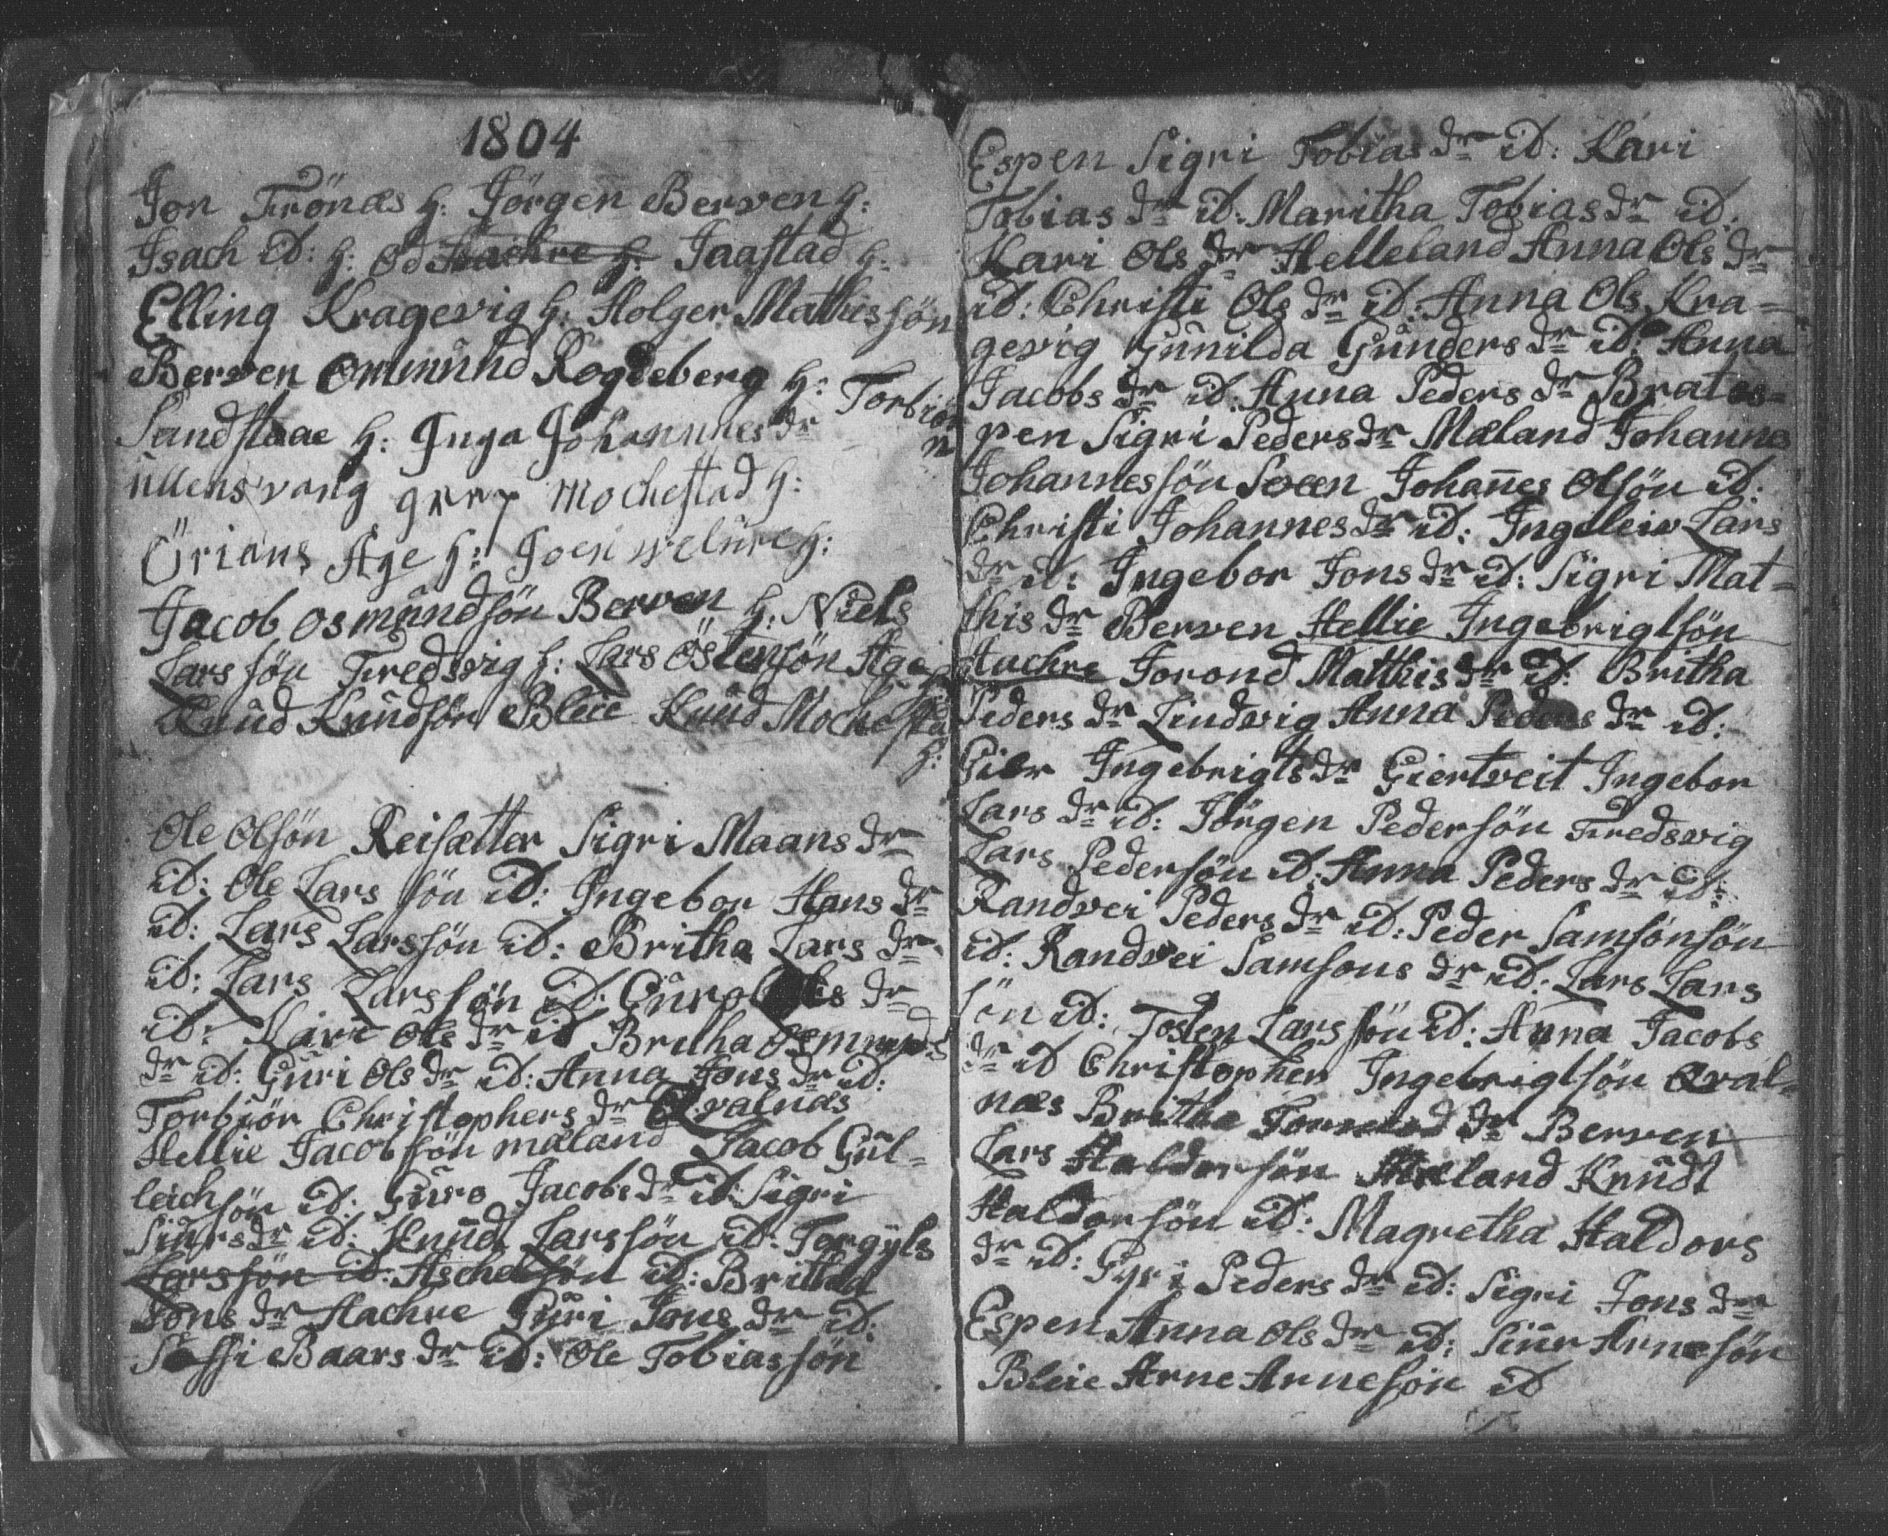 1804
Jon Frönæs h: Jörgen Berven h:
Isach id: h: Od Aachre h: Jaastad h:
Elling Kragevig h: Holger Mathissön
Berven Ommünd Rogdeberg h: Torbiör
n
Sandstaae h: Inga Johannes dr
üllensvang Mochestad h:
Örians Age h: Joen h:
Jacob Osmündsön Berven h: Niels
Lars sön Fredsvig h: Lars Östensön Age h:
Knüd Knüdsön Bleie Knüd Mochesta
h:
Ole Olsön Reisæter Sigri Maans dr
id: Ole Lars sön id: Ingebor Hans dr
id: Lars Larssön id: Britha Lars dr
id: Lars Larssön id: Güro Ols dr
id: Kari Ols dr id Britha Osmünds
dr id: Güri Ols dr id: Anna Jons dr id:
Torbiör Christophers dr Qvalnæs
Hellie Jacobsön mæland Jacob Gül-
leichsön id: Güro Jacobs dr id: Sigri
Siürs dr id: Knüd Larssön id: Torgyls
Larssön id: Aschelsön id: Britha
Jons dr Aachre Güri Jons dr id:
Seffi Baars dr id: Ole Tobiassön
Espen Sigri Tobias dr id: Kari
Tobias dr id: Maritha Tobias dr id:
Kari Ols dr Helleland Anna Ols dr
id: Christi Ols dr id: Anna Ols Kra-
gevig Günilda Günders dr id: Anna
Jacobs dr id: Anna Peders dr Brates-
pen Sigri Peders dr Mæland Johannes
Johannessön Sveen Johañes Olsön id:
Christi Johannes dr id: Ingeleiv Lars
dr id: Ingebor Jons dr id: Sigri Mat-
this dr Berven Hellie Ingebrigtsön
Aachre Jorond Matthis dr id: Britha
Peders dr Lindvig Anna Peders dr id:
Gier Ingebrigts dr Giertveit Ingebor
Lars dr id: Jörgen Pedersön Fredsvig
Lars Pedersön id: Anna Peders dr id:
Randvei Peders dr id: Peder Samsönsön
id: Randvei Samsons dr id: Lars Lars
sön id: Tosten Larssön id: Anna Jacobs
dr id Christopher Ingebrigtsön Qval-
næs Britha dr Berven
Lars Haldorsön Mæland Knüdt
Haldorsön id: Magretha Haldors
dr id: Gyri Peders dr id: Sigri Jons dr
Espen Anna Ols dr id: Siür Arnesön
Bleie Arne Arnesön id